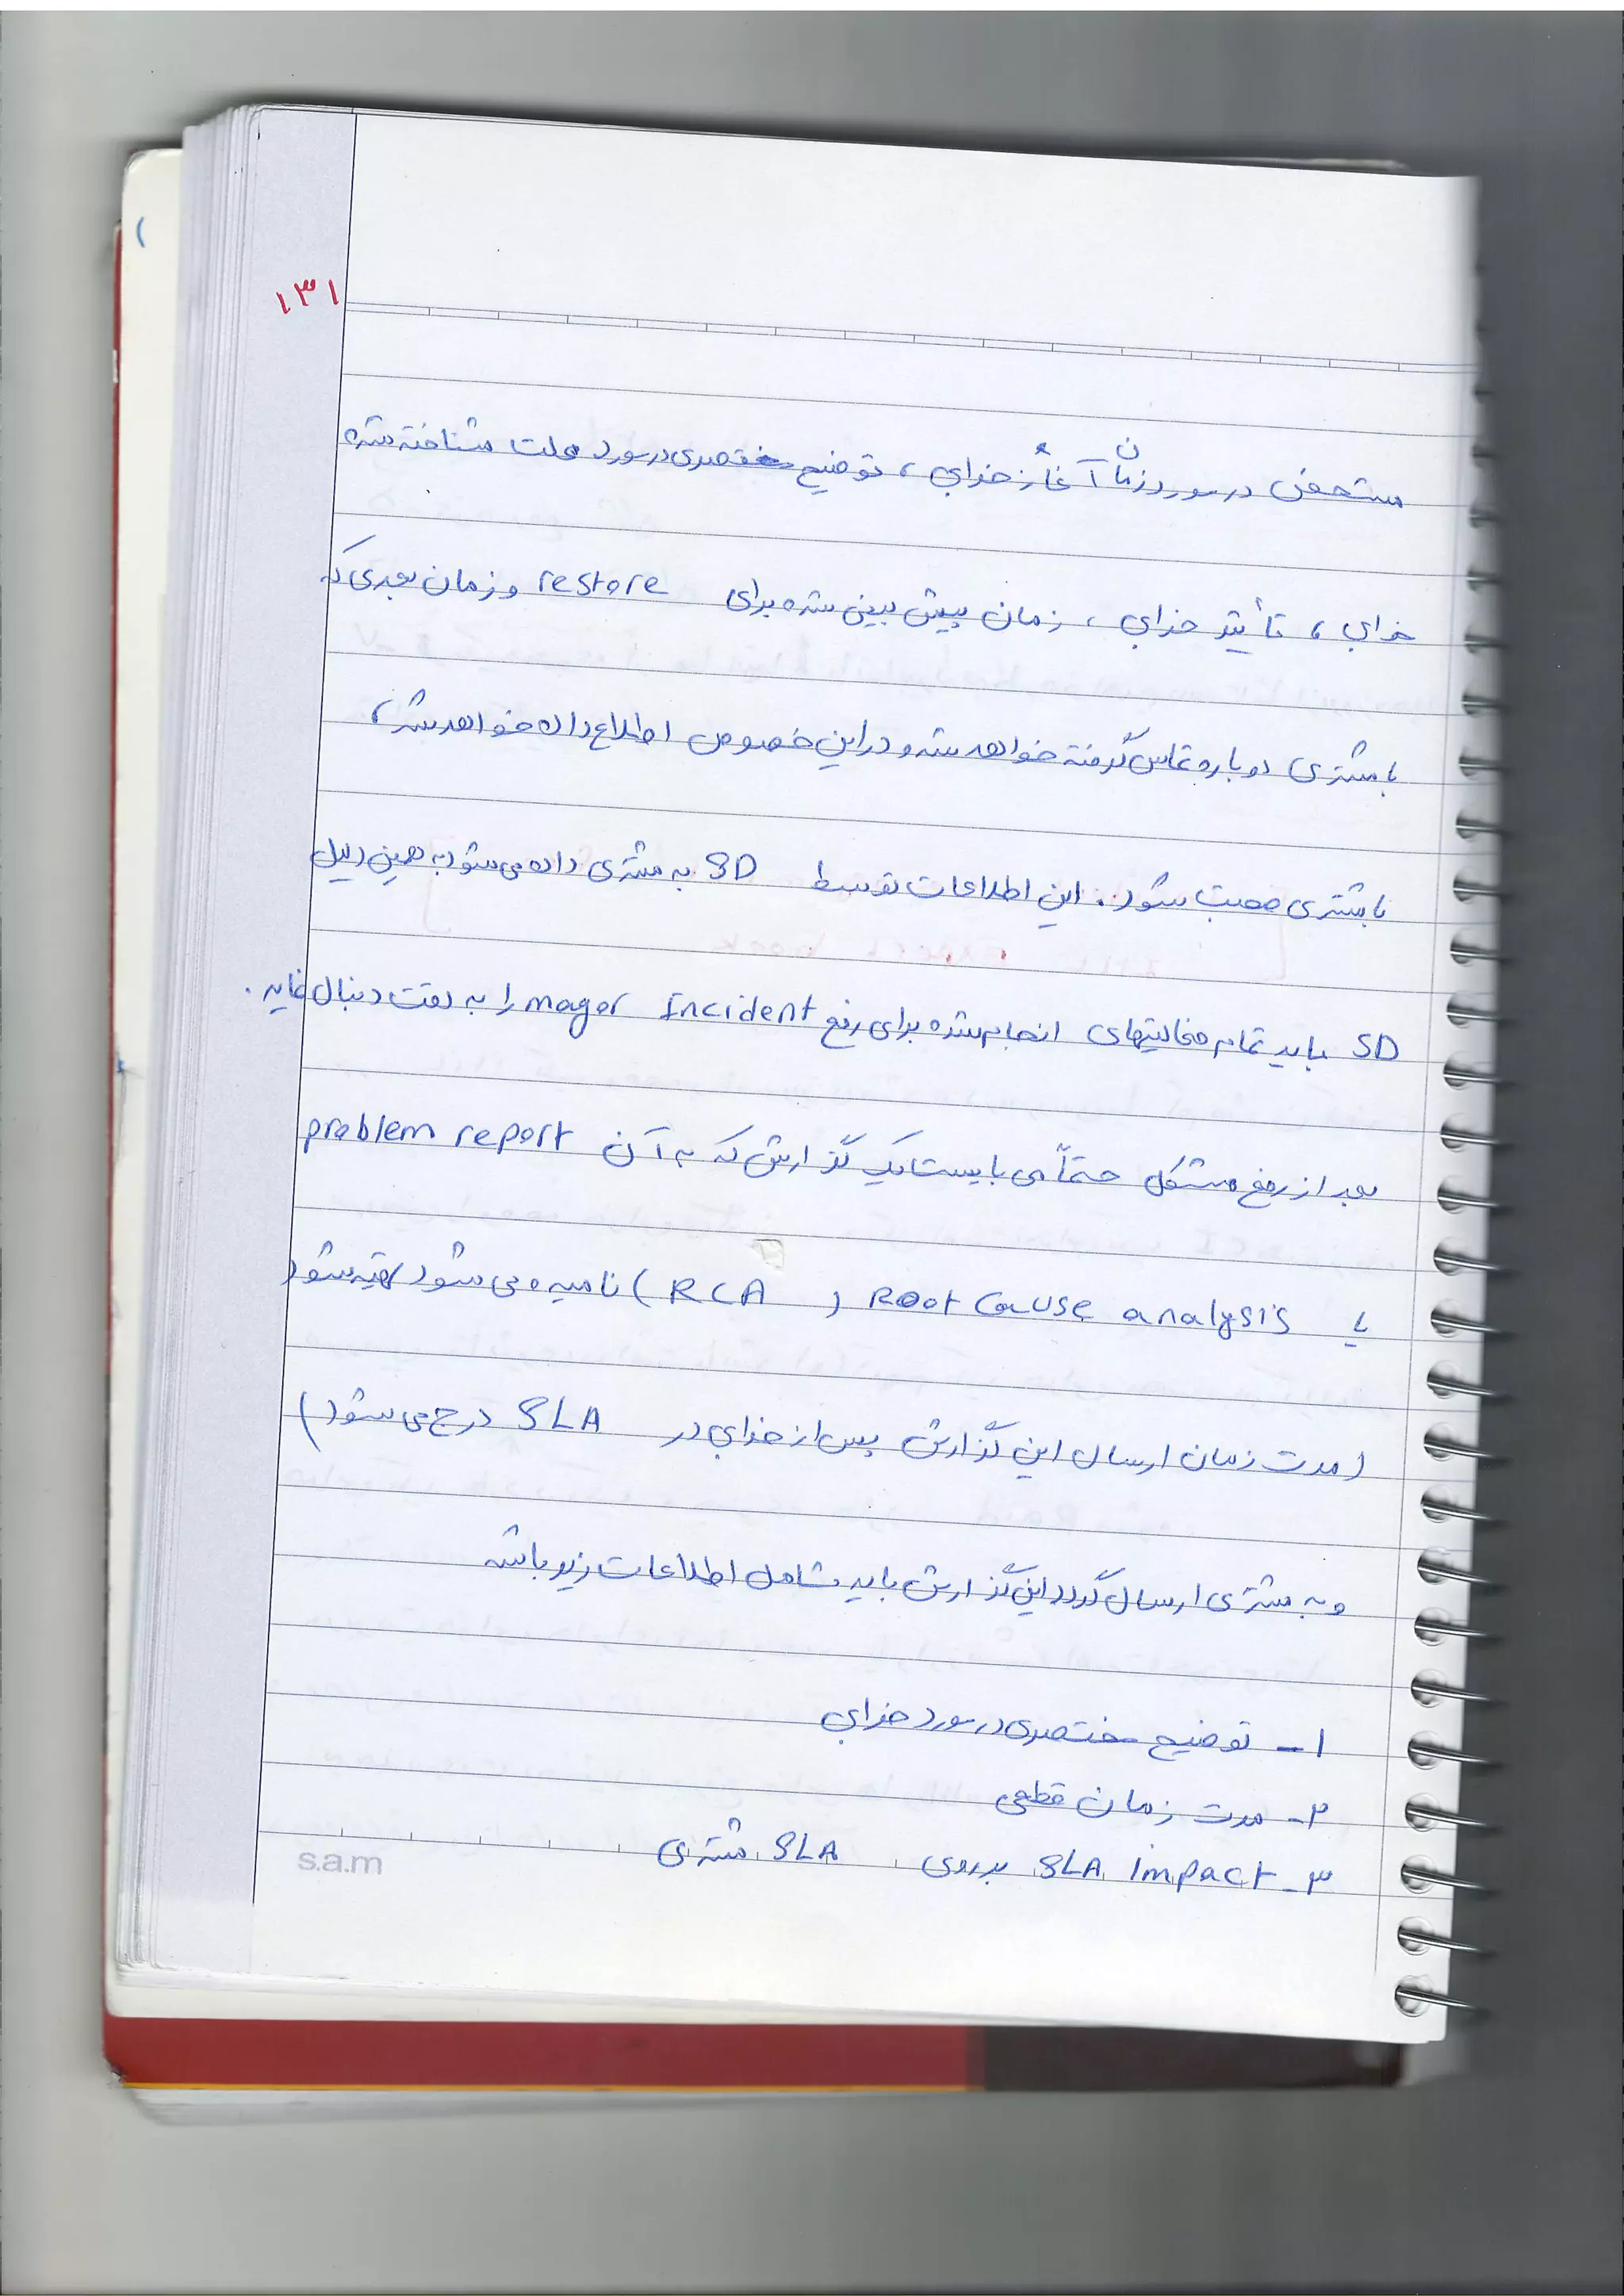 ۱۳۱
مشخص در مورد زمان آغاز خرابی، توضیح مختصری در مورد علت شناخته شده
خرابی، تأثیر خرابی، زمان پیش بینی شده برای restore و زمان بعدی که
با مشتری دوباره تماس گرفته خواهد شد و در این خصوص اطلاع داده خواهد شد،
با مشتری صحبت شود. این اطلاعات توسط SD به مشتری داده می شود به همین دلیل
SD باید تمام فعالیتهای انجام شده برای رفع magor Incident را به دقت دنبال نماید.
بعد از رفع مشکل حتماً می بایست یک گزارش که به آن problem report
یا Root Cause analysis (RCA) نامیده می شود تهیه شود
(مدت زمان ارسال این گزارش پس از خرابی در SLA درج می شود)
و به مشتری ارسال گردد این گزارش باید شامل اطلاعات زیر باشد
۱- توضیح مختصری در مورد خرابی
۲- مدت زمان قطعی
۳- SLA Impact بر روی SLA مشتری
s.a.m